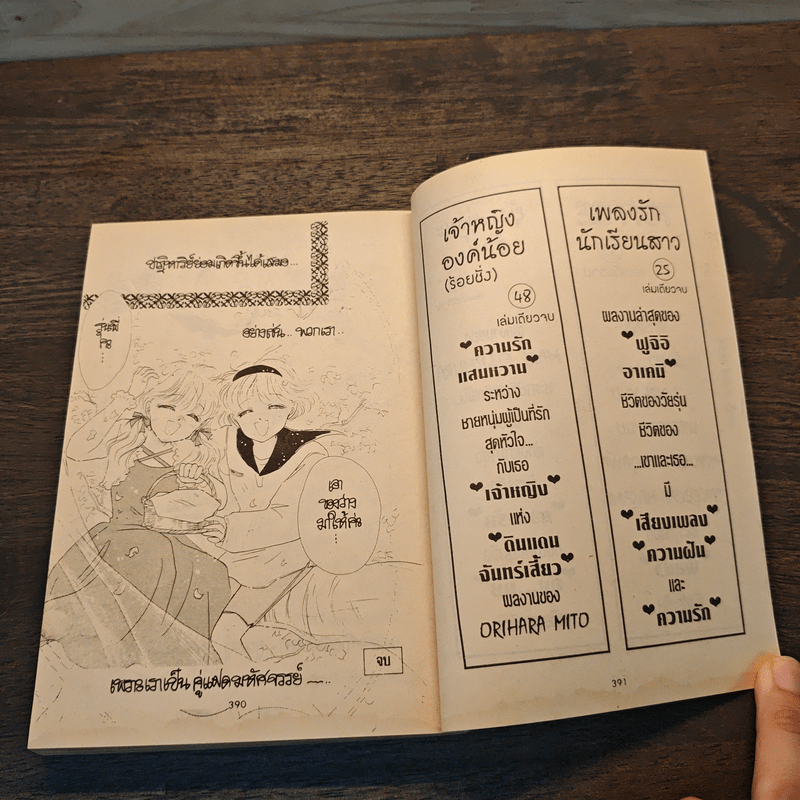 ปาฏิหาริย์ย่อมเกิดขึ้นได้เสมอ...
อย่างเช่น... พวกเรา..
รุ่นพี่
คะ
...
เอา
ของว่าง
มาให้ค่ะ
...
จบ
เพราะเราเป็น คู่แฝดมหัศจรรย์
390
เจ้าหญิง
องค์น้อย
(ร้อยชั่ง)
48
เล่มเดียวจบ
ความรัก
แสนหวาน
ระหว่าง
ชายหนุ่มผู้เป็นที่รัก
สุดหัวใจ...
กับเธอ
เจ้าหญิง
แห่ง
ดินแดน
จันทร์เสี้ยว
ผลงานของ
ORIHARA MITO
เพลงรัก
นักเรียนสาว
25
เล่มเดียวจบ
ผลงานล่าสุดของ
ฟูจิอิ
อาเคมิ
ชีวิตของวัยรุ่น
ชีวิตของ
...เขาและเธอ...
มี
เสียงเพลง
ความฝัน
และ
ความรัก
391